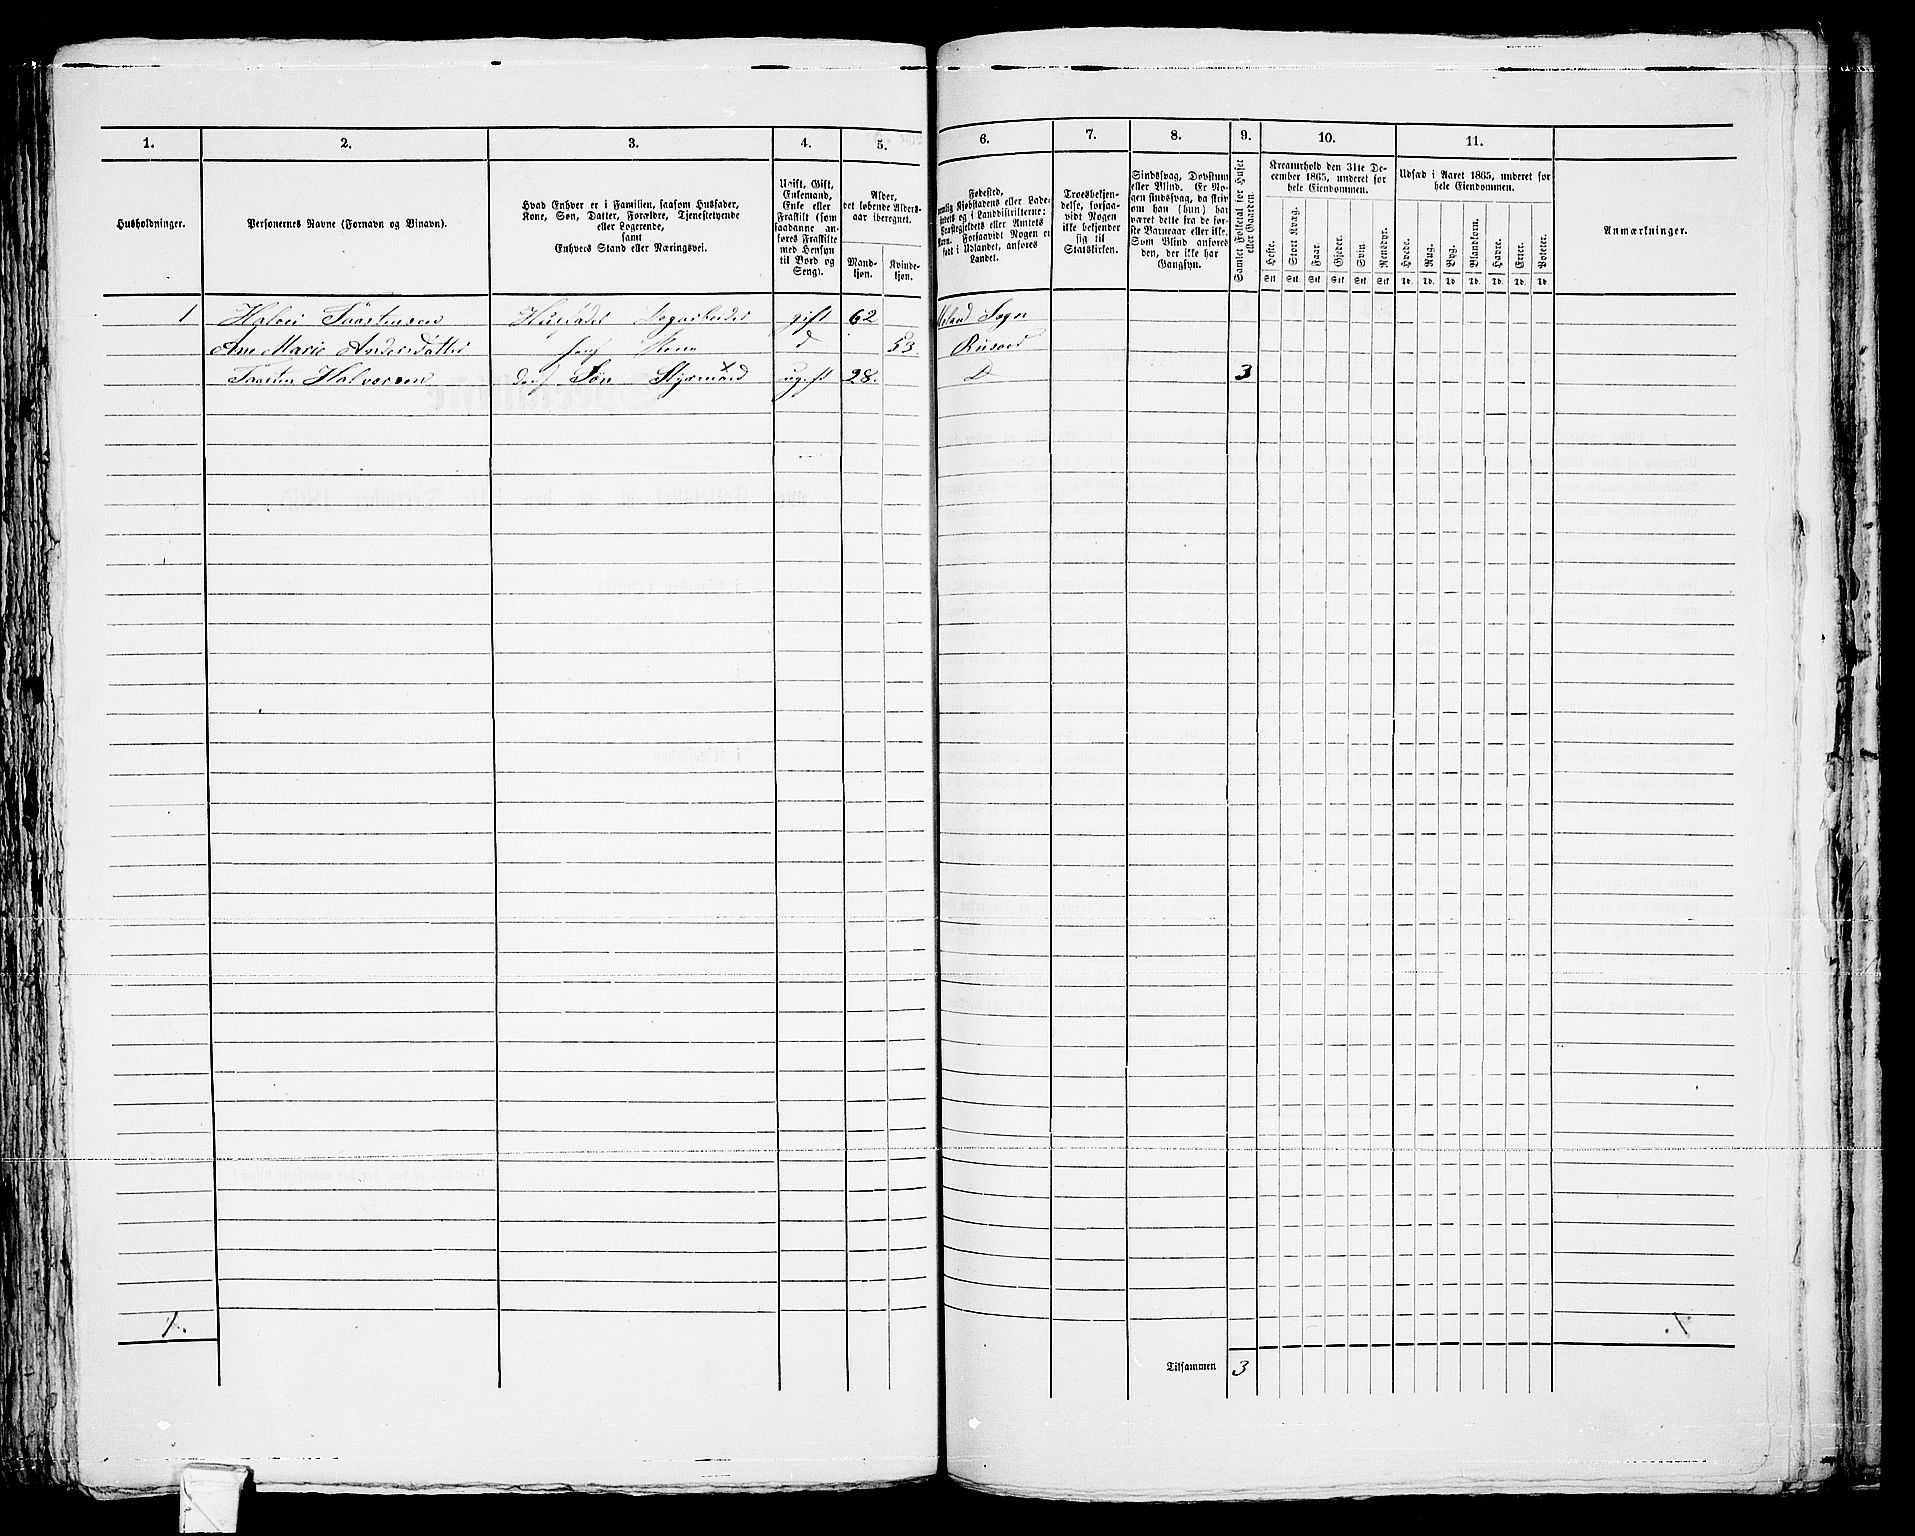 1.
2.
3.
4.
5.
6.
7.
8.
9.
10.
11.
Husholdninger.
Personernes Navne (Fornavn og Binavn).
Hvad Enhver er i Familien, saasom Husfader,
Kone, Søn, Datter, Forældre, Tjenestetyende
eller Logerende,
samt
Enhvers Stand eller Næringsvei.
Ugift, Gift,
Enkemand,
Enke eller
Fraskilt (som
saadanne an-
føres Fraskilte
med Hensyn
til Bord og
Seng).
Alder,
det løbende Alders-
aar iberegnet.
Mand-
kjøn.
Kvinde-
kjøn.
Fødested,
Kjøbstadens eller Lade-
stedets og i Landdistrikterne:
Præstegjeldets eller Amtets
Navn. Forsaavidt Nogen er
født i Udlandet, anføres
Landet.
Troesbekjen-
delse, forsaa-
vidt Nogen
ikke bekjender
sig til
Statskirken.
Sindssvag, Døvstum
eller Blind. Er No-
gen sindssvag, da skriv
om han (hun) har
været dette fra de før-
ste Barneaar eller ikke.
Som Blind anføres
den, der ikke har
Gangsyn.
Samlet Folketal for Huset
eller Gaarden.
Kreaturhold den 31te De-
cember 1865, underet for
hele Eiendommen.
Heste.
Stort Kvæg.
Faar.
Gjeder.
Svin.
Rensdyr.
Stk Stk Stk Stk Stk Stk
Udsæd i Aaret 1865, underet for
hele Eiendommen.
Hvede.
Rug.
Byg.
Blandkorn.
Havre.
Erter.
Poteter.
Td. Td. Td Td Td. Td. Td.
Anmærkninger.
1 Halvor Taastensen Husfader Dagarbeider gift 62 Sogn
Ane Marie Andersdatter hans Kone D 53. Riisoer
Taasten Halvorsen deres Søn Styrmand ugift 28. D 3
1.
Tilsammen 3